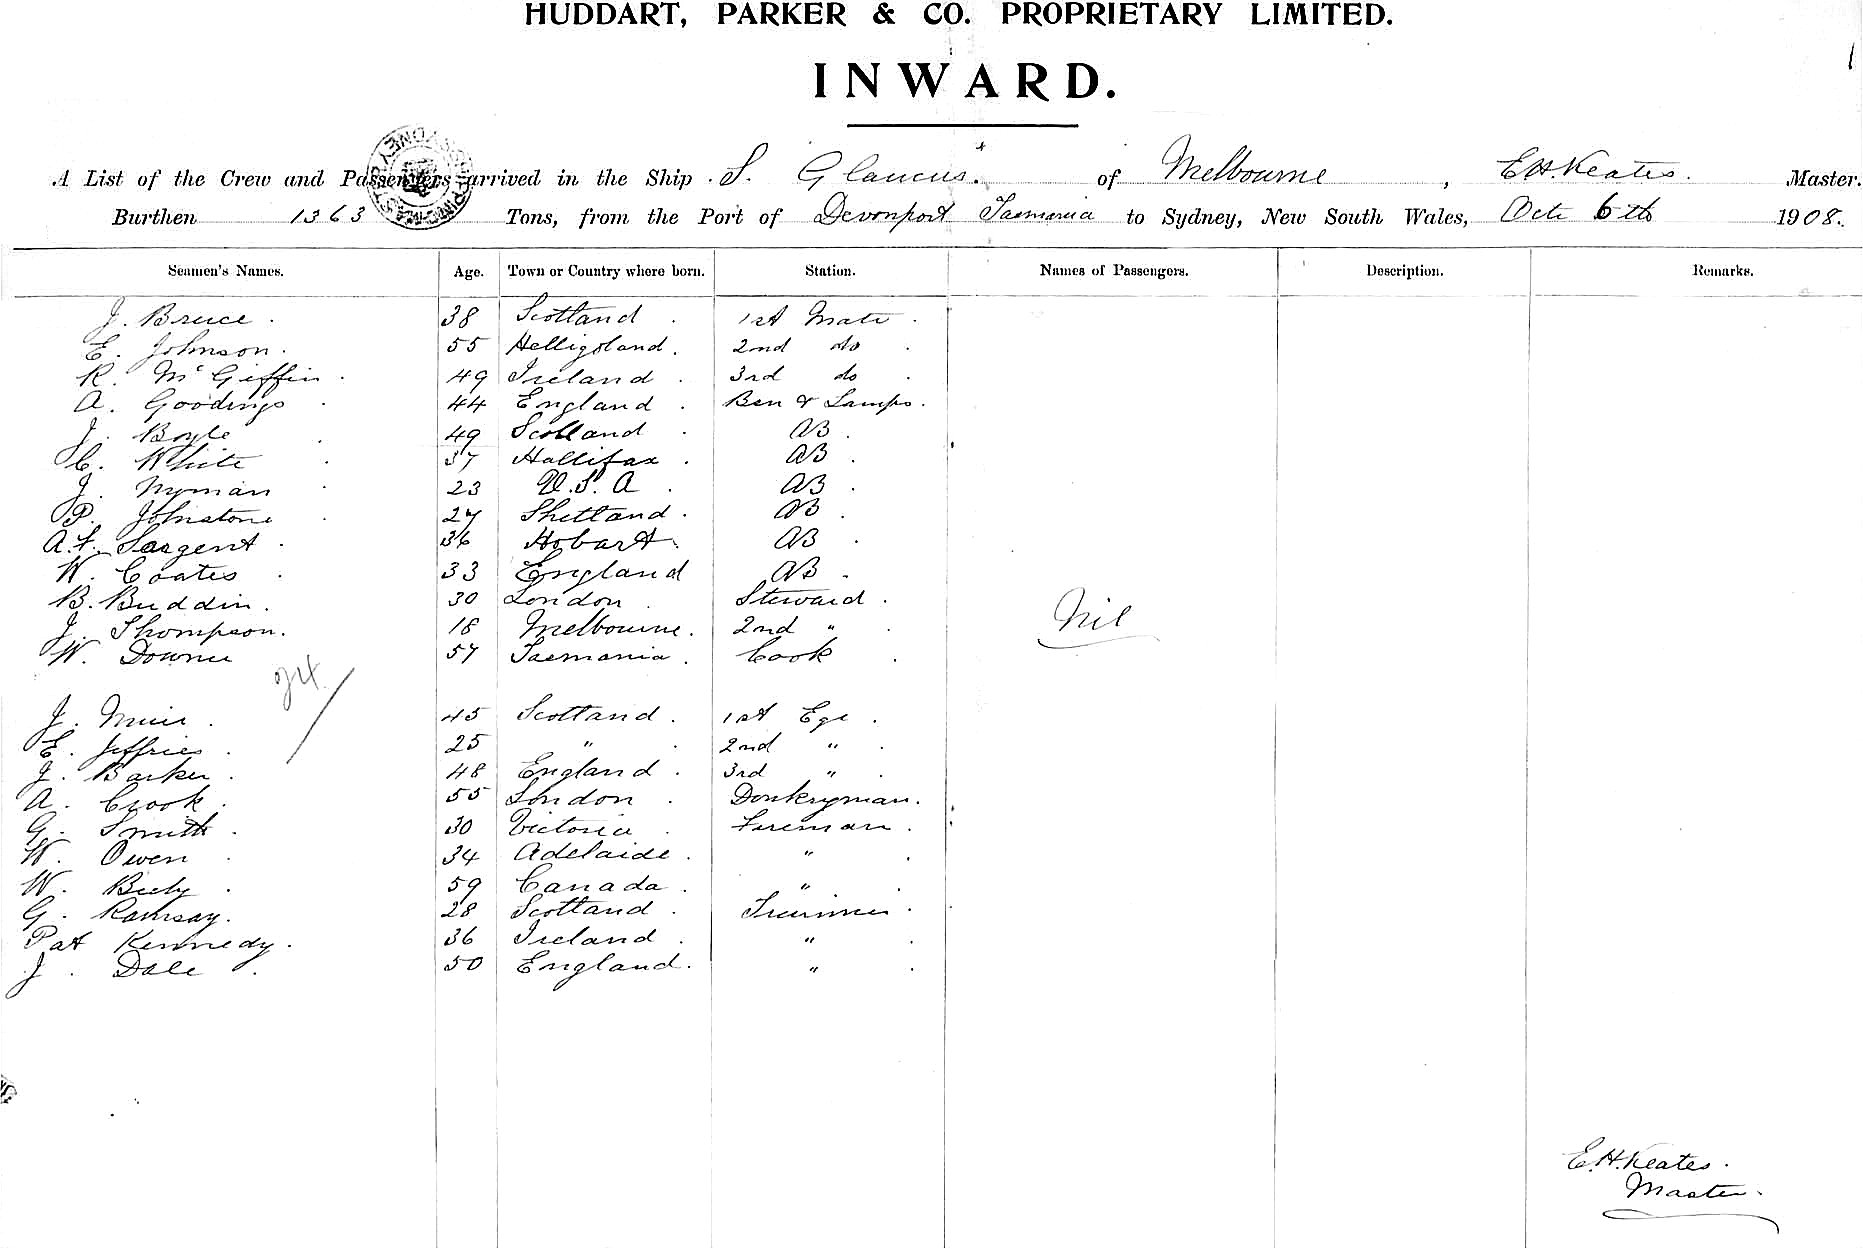 HUDDART, PARKER & CO. PROPRIETARY LIMITED.
INWARD.
A List of the Crew and Passengers arrived in the Ship S. Glaucus. of Melbourne, E.H. Keates. Master.
Burthen 1363 Tons, from the Port of Devonport Tasmania to Sydney, New South Wales, Octr 6th 1908.
Seamen's Names. Age. Town or Country where born. Station. Names of Passengers. Description. Remarks.
J. Bruce. 38 Scotland. 1st Mate.
E. Johnson. 55 Helligoland. 2nd do.
R. McGiffin. 49 Ireland. 3rd do.
A. Goodings. 44 England. Bsn & Lamps.
J. Boyle. 49 Scotland. AB.
C. White. 37 Hallifax. AB.
J. Nyman. 23 U.S.A. AB.
P. Johnstone. 27 Shetland. AB.
A.F. Sargent. 36 Hobart. AB.
W. Coates. 33 England AB.
B. Buddin. 30 London. Steward.
J. Thompson. 18 Melbourne. 2nd "
Nil
W. Downie 57 Tasmania. Cook.
24
J. Muir. 45 Scotland. 1st Ege.
E. Jeffries. 25 " 2nd "
J. Barker. 48 England. 3rd "
A. Crook. 55 London. Donkeyman.
G. Smith. 30 Victoria. Fireman.
W. Owen. 34 Adelaide. "
W. 59 Canada. "
G. Ramsay. 28 Scotland. Trimmer.
Pat Kennedy. 36 Ireland. "
J. Dale. 50 England. "
E.H. Keates.
Master.